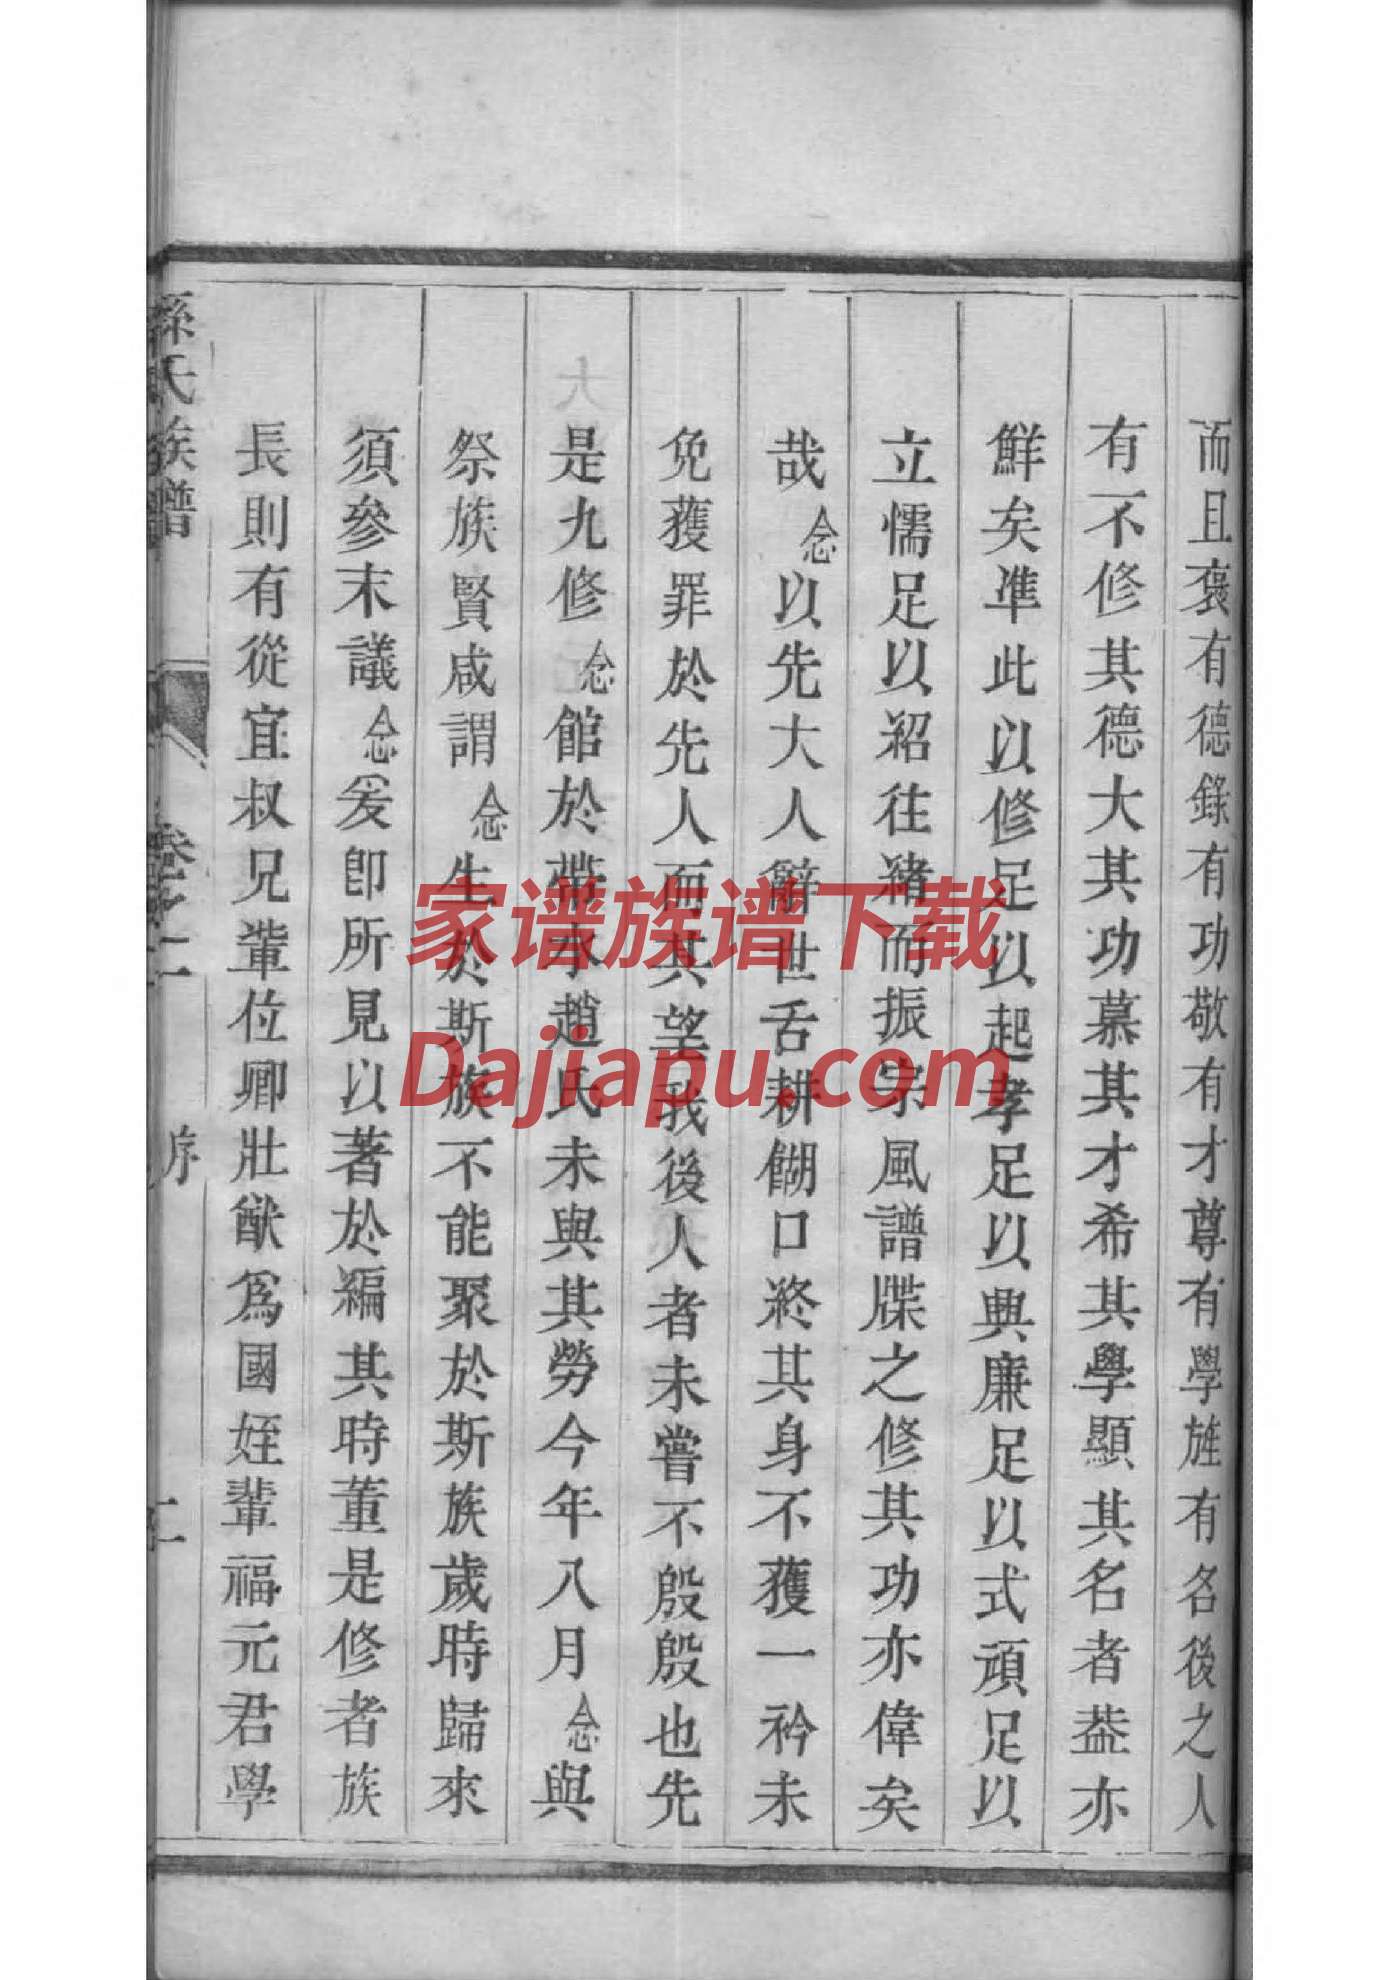 而且褒有德錄有功敬有才尊有學旌有名後之人
有不修其德大其功慕其才希其學顯其名者盐亦
鮮矣準此以修足以起孝足以興廉足以式頑足以
立懦足以紹往緒而振宗風譜牒之修其功亦偉矣
哉念以先大人辭世舌耕餬口終其身不獲一衿未
免獲罪於先人而其望我後人者未嘗不殷殷也先
是九修念館於帶水趙氏未與其勞今年八月念與
祭族賢咸謂念生於斯族不能聚於斯族歲時歸來
須參末議念爰卽所見以著於編其時董是修者族
長則有從宜叔兄輩位卿壯猷爲國姪輩福元君學
孫氏族譜 卷之二 序 二
家谱族谱下载
Dajiapu.com